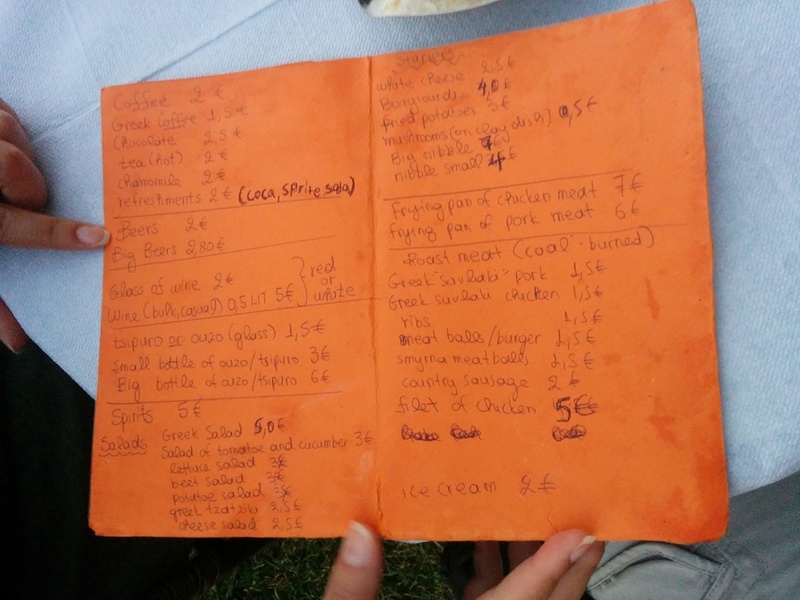 Coffee 2 €
Greek Coffee 1,5 €
Chocolate 2,5 €
tea (hot) 2 €
chamomile 2 €
refreshments 2 € (coca, sprite soda)
Beers 2 €
Big Beers 2,80 €
Glass of wine 2 €
Wine (bulk, casual) 0,5 LIT 5 €
red or white
tsipuro or ouzo (glass) 1,5 €
Small bottle of ouzo/tsipuro 3 €
Big bottle of ouzo/tsipuro 6 €
Spirits 5 €
Salads
Greek Salad 5,0 €
Salad of tomatoe and cucumber 3 €
lettuce salad 3 €
beet salad 3 €
potatoe salad 3 €
greek tzatziki 2,5 €
cheese salad 2,5 €
white cheese 2,5 €
Bougiourdi 4,0 €
fried potatoes 3 €
mushrooms (on clay dish) ,5 €
Big nibble 7 €
nibble small 4 €
Frying pan of chicken meat 7 €
Frying pan of pork meat 6 €
Roast meat (coal-burned)
Greek "suvlaki" pork 1,5 €
Greek suvlaki chicken 1,5 €
ribs 1,5 €
meat balls/burger 1,5 €
smyrna meatballs 1,5 €
country sausage 2 €
filet of chicken 5 €
ice cream 2 €